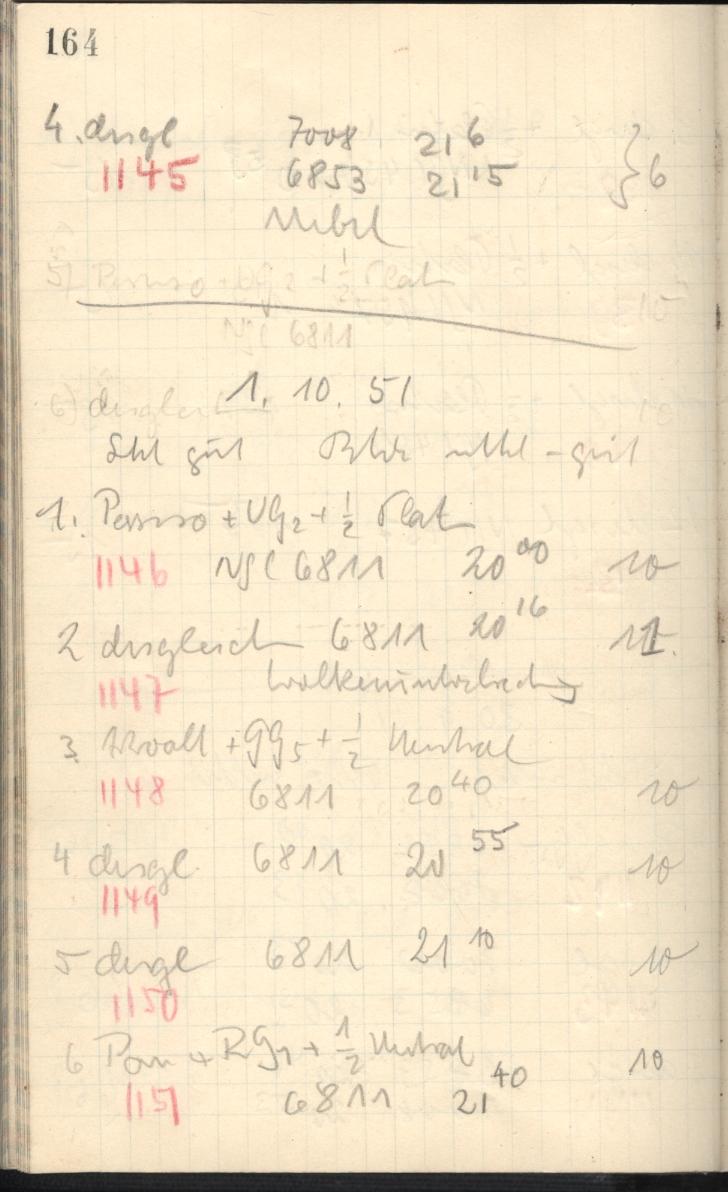 164
4. desgl 7008 21 6
1145 6853 21 15 } 6
Nebel
5) Perseno + UG2 + 1/2 Plat
NGC 6811
1. 10. 51
6) desgleich
gut - gut
1. Perseno + UG2 + 1/2 Plat
1146 NGC 6811 20 00 10
2 desgleich 6811 20 16 11
1147 Wolkenunterbrechung
3. + GG5 + 1/2 Neutral
1148 6811 20 40 10
4 desgl. 6811 20 55 10
1149
5 desgl 6811 21 10 10
1150
6 Pan + RG1 + 1/2 Neutral 10
1151 6811 21 40